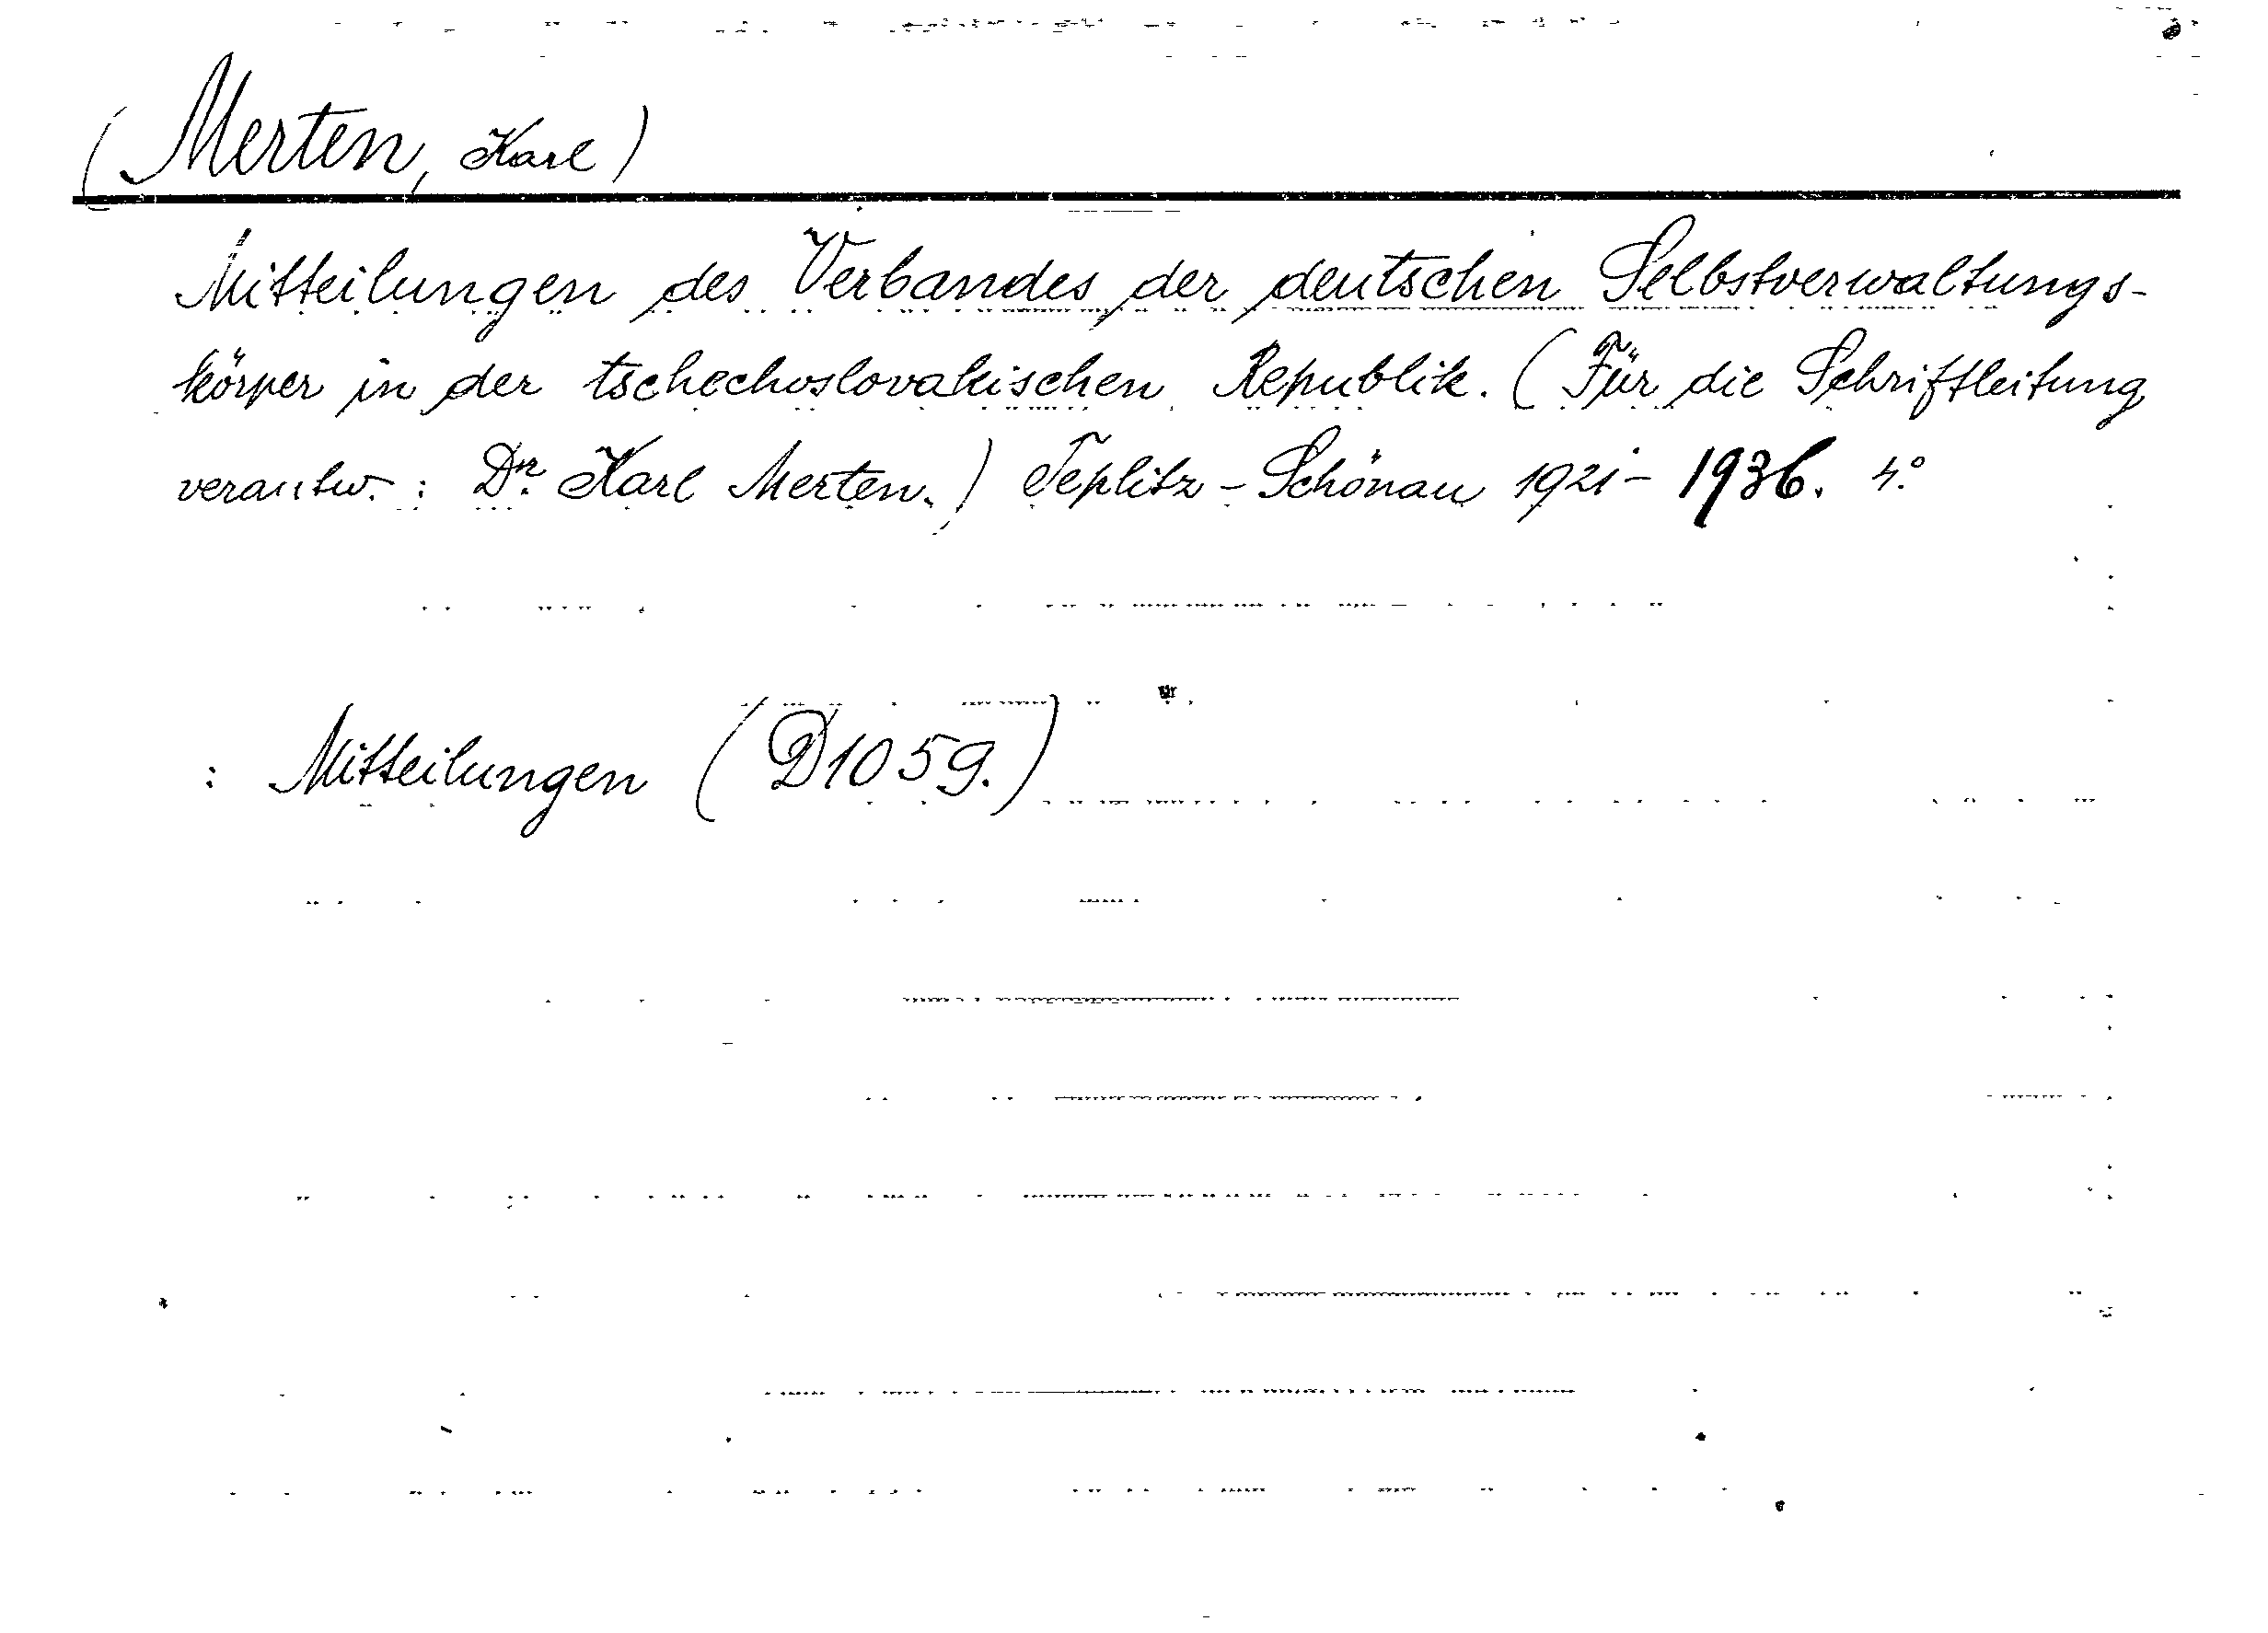 (Merten, Karl)
Mitteilungen des Verbandes der deutschen Selbstverwaltungs-
körper in der tschechoslovakischen Republik. (Für die Schriftleitung
verantw.: Dr. Karl Merten.) Teplitz-Schönau 1921-1936. 4.°
: Mitteilungen (D1059.)